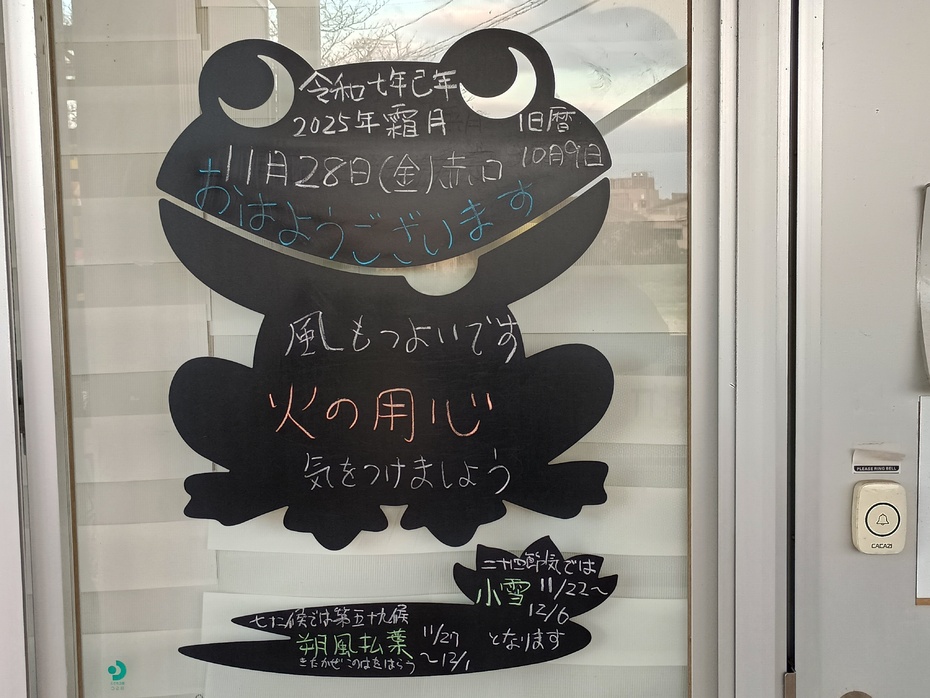 令和七年己年
2025年霜月
旧暦
10月9日
11月28日(金)赤口
おはようございます
風もつよいです
火の用心
気をつけましょう
二十四節気では
小雪 11/22〜
12/6
となります
七十二候では第五十九候
朔風払葉
きたかぜ このはをはらう
11/27
〜12/1
PLEASE RING BELL
CACAZI